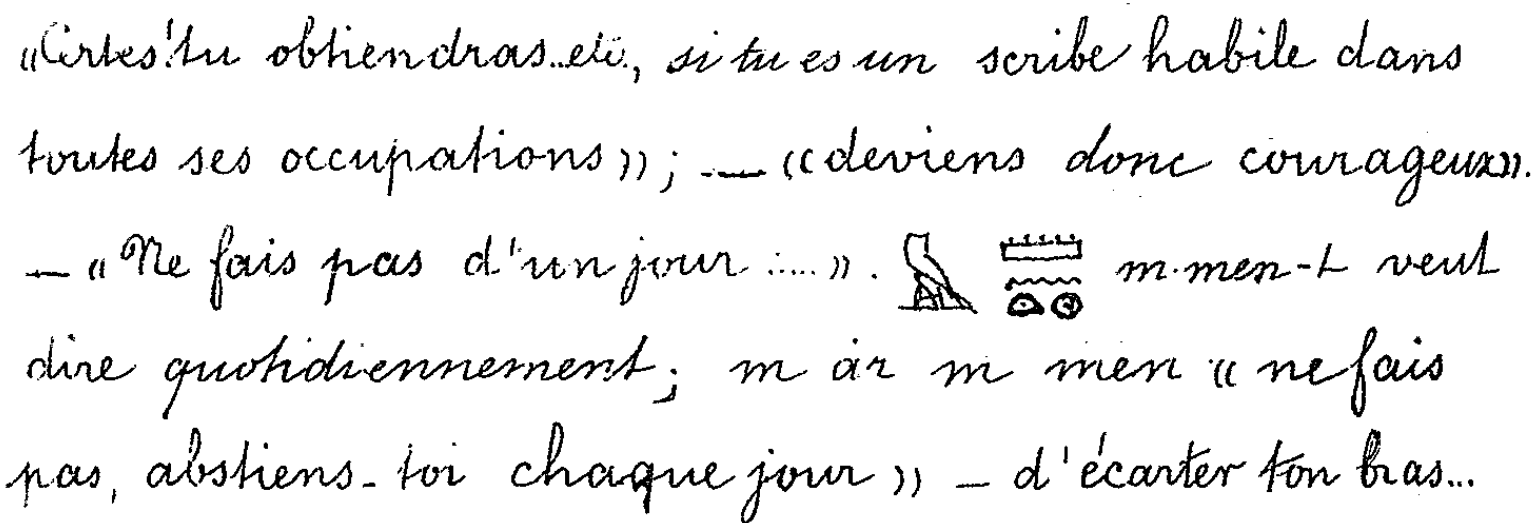 «Certes! tu obtiendras..etc., si tu es un scribe habile dans
toutes ses occupations»; — «deviens donc courageux».
— «Ne fais pas d'un jour .....». 𓅓 𓏠𓈖𓏏𓇳 m.men-t veut
dire quotidiennement; m àr m men «ne fais
pas, abstiens-toi chaque jour» — d'écarter ton bras...